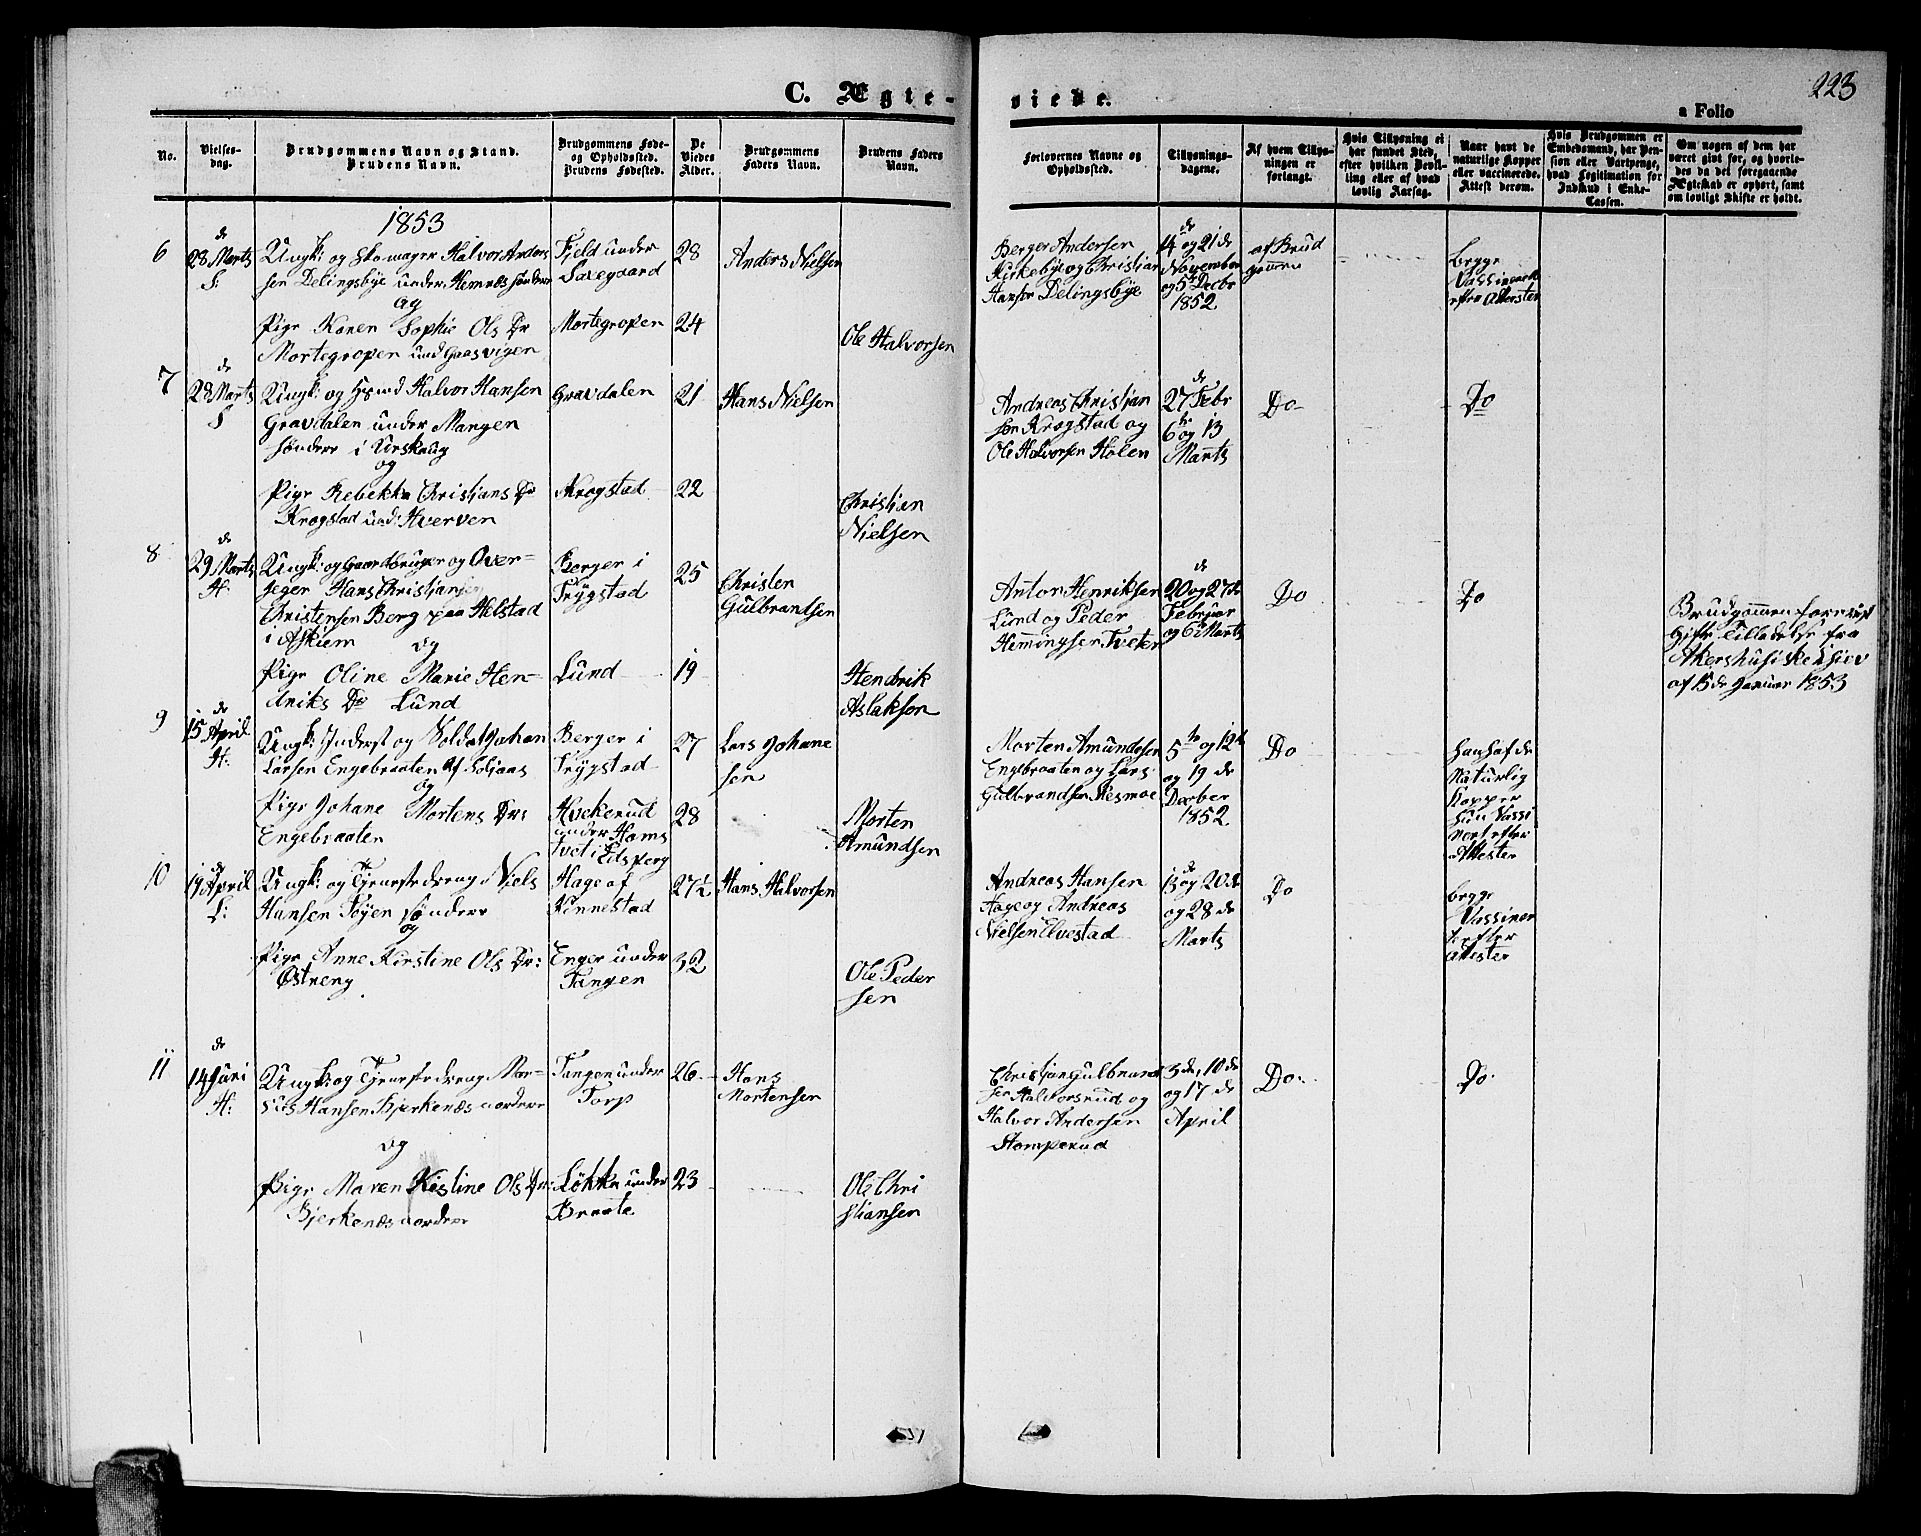 C. Ægte-
viede.
223
a Folio
No.
Vielses-
dag.
Brudgommens Navn og Stand.
Brudens Navn.
Brudgommens Føde-
og Opholdssted.
Brudens Fødested.
De
Viedes
Alder.
Brudgommens
Faders Navn.
Brudens Faders
Navn.
Forlovernes Navne og
Opholdssted.
Tillysnings-
dagene.
Af hvem Tillys-
ningen er
forlangt.
Hvis Tillysning ei
har fundet Sted,
efter hvilken Bevil-
ling eller af hvad
lovlig Aarsag.
Naar havt de
naturlige Kopper
eller vaccinerede.
Attest derom.
Hvis Brudgommen er
Embedsmand, har Pen-
sion eller Vartpenge,
hvad Legitimation for
Indskud i Enke-
Cassen.
Om nogen af dem har
været gift før, og hvorle-
des da det foregaaende
Ægteskab er ophørt, samt
om lovligt Skifte er holdt.
1853
6
28 de Marts
S:
Ungk: og Skomager Halvor Anders
sen Delingsbye under Hemnæs søndere
og
Pige Karen Sophie Ols Dr
Mortegropen und Gaasvigen
Fjeld under
Mortegropen
28
24
Anders Nielsen
Ole Halvorsen
Berger Andersen
Kirkebye og Christian
Hansen Delingsbye
14 og 21 de
November
og 5 Decbr
1852
af Brud
gomen
begge
efter Attester
7
28 de Marts
S
Ungk: og Hsmd Halvor Hansen
Gravdalen under Mangen
søndere i Urskoug
og
Pige Rebekka Christians Dr
Krogstad und: Hverven
Gravdalen
Krogstad
21
22
Hans Nielsen
Christian
Nielsen
Andreas Christian
sen Krogstad og
Ole Halvorsen Holen
27 de Febr
6 te og 13
Marts
Do
Do
8
29 de Marts
H:
Ungk: og Gaardbruger og Over=
jeger Hans Christian
Christensen Berg paa Helstad
i Askim
og
Pige Oline Marie Hen=
driks Dr Lund
Berger i
Trygstad
Lund
25
19
Christen
Gulbrandsen
Hendrik
Aslaksen
Anton Henriksen
Lund og Peder
Hemmingsen Tveter
20 og 27 de
Februar
og 6 Marts
Do
Do
Brudgommen forevist
Gifte Tilladelse fra
af 15 de Januar 1853
9
15 de April
H:
Ungk: Inderst og Soldat Johan
Larsen Engebraaten af
og
Pige Johane Mortens Dr:
Engebraaten
Berger i
Trygstad
Hvekerud
under Hams
tvet i Eidsberg
27
28
Lars Johane
sen
Morten
Amundsen
Morten Amundsen
Engebraaten og Lars
Gulbrandsen
5 te og 12 te
og 19 de
Decber
1852
Do
han haft de
Naturlig
Kopper
hun Vassi
nert efter
Attester
10
19 de April
L:
Ungk: og Tjenestedreng Niels
Hansen Tøyen søndere
og
Pige Anne Kirstine Ols Dr:
Østreng
Hage af
Kinnestad
Enger under
Tangen
27½
32
Hans Halvorsen
Ole Peder
sen
Andreas Hansen
Hage og Andreas
Nielsen Elvestad
13 og 20 de
og 28 de
Marts
Do
begge
Vassiner
te efter
Attester
11
14 de Juni
H:
Ungk: og Tjenestedreng Mar=
Hansen Bjerkenæs nordere
og
Pige Maren Kistine Ols Dr:
Bjerkenæs nordere
Tangen under
Torp
Løkka under
Braate
26
23
Hans
Mortensen
Ole Chri
stiansen
Christian Gulbrand
sen Halvorsrud og
Halvor Andersen
Stomperud
3 de, 10 de
og 17 de
April
Do
Do